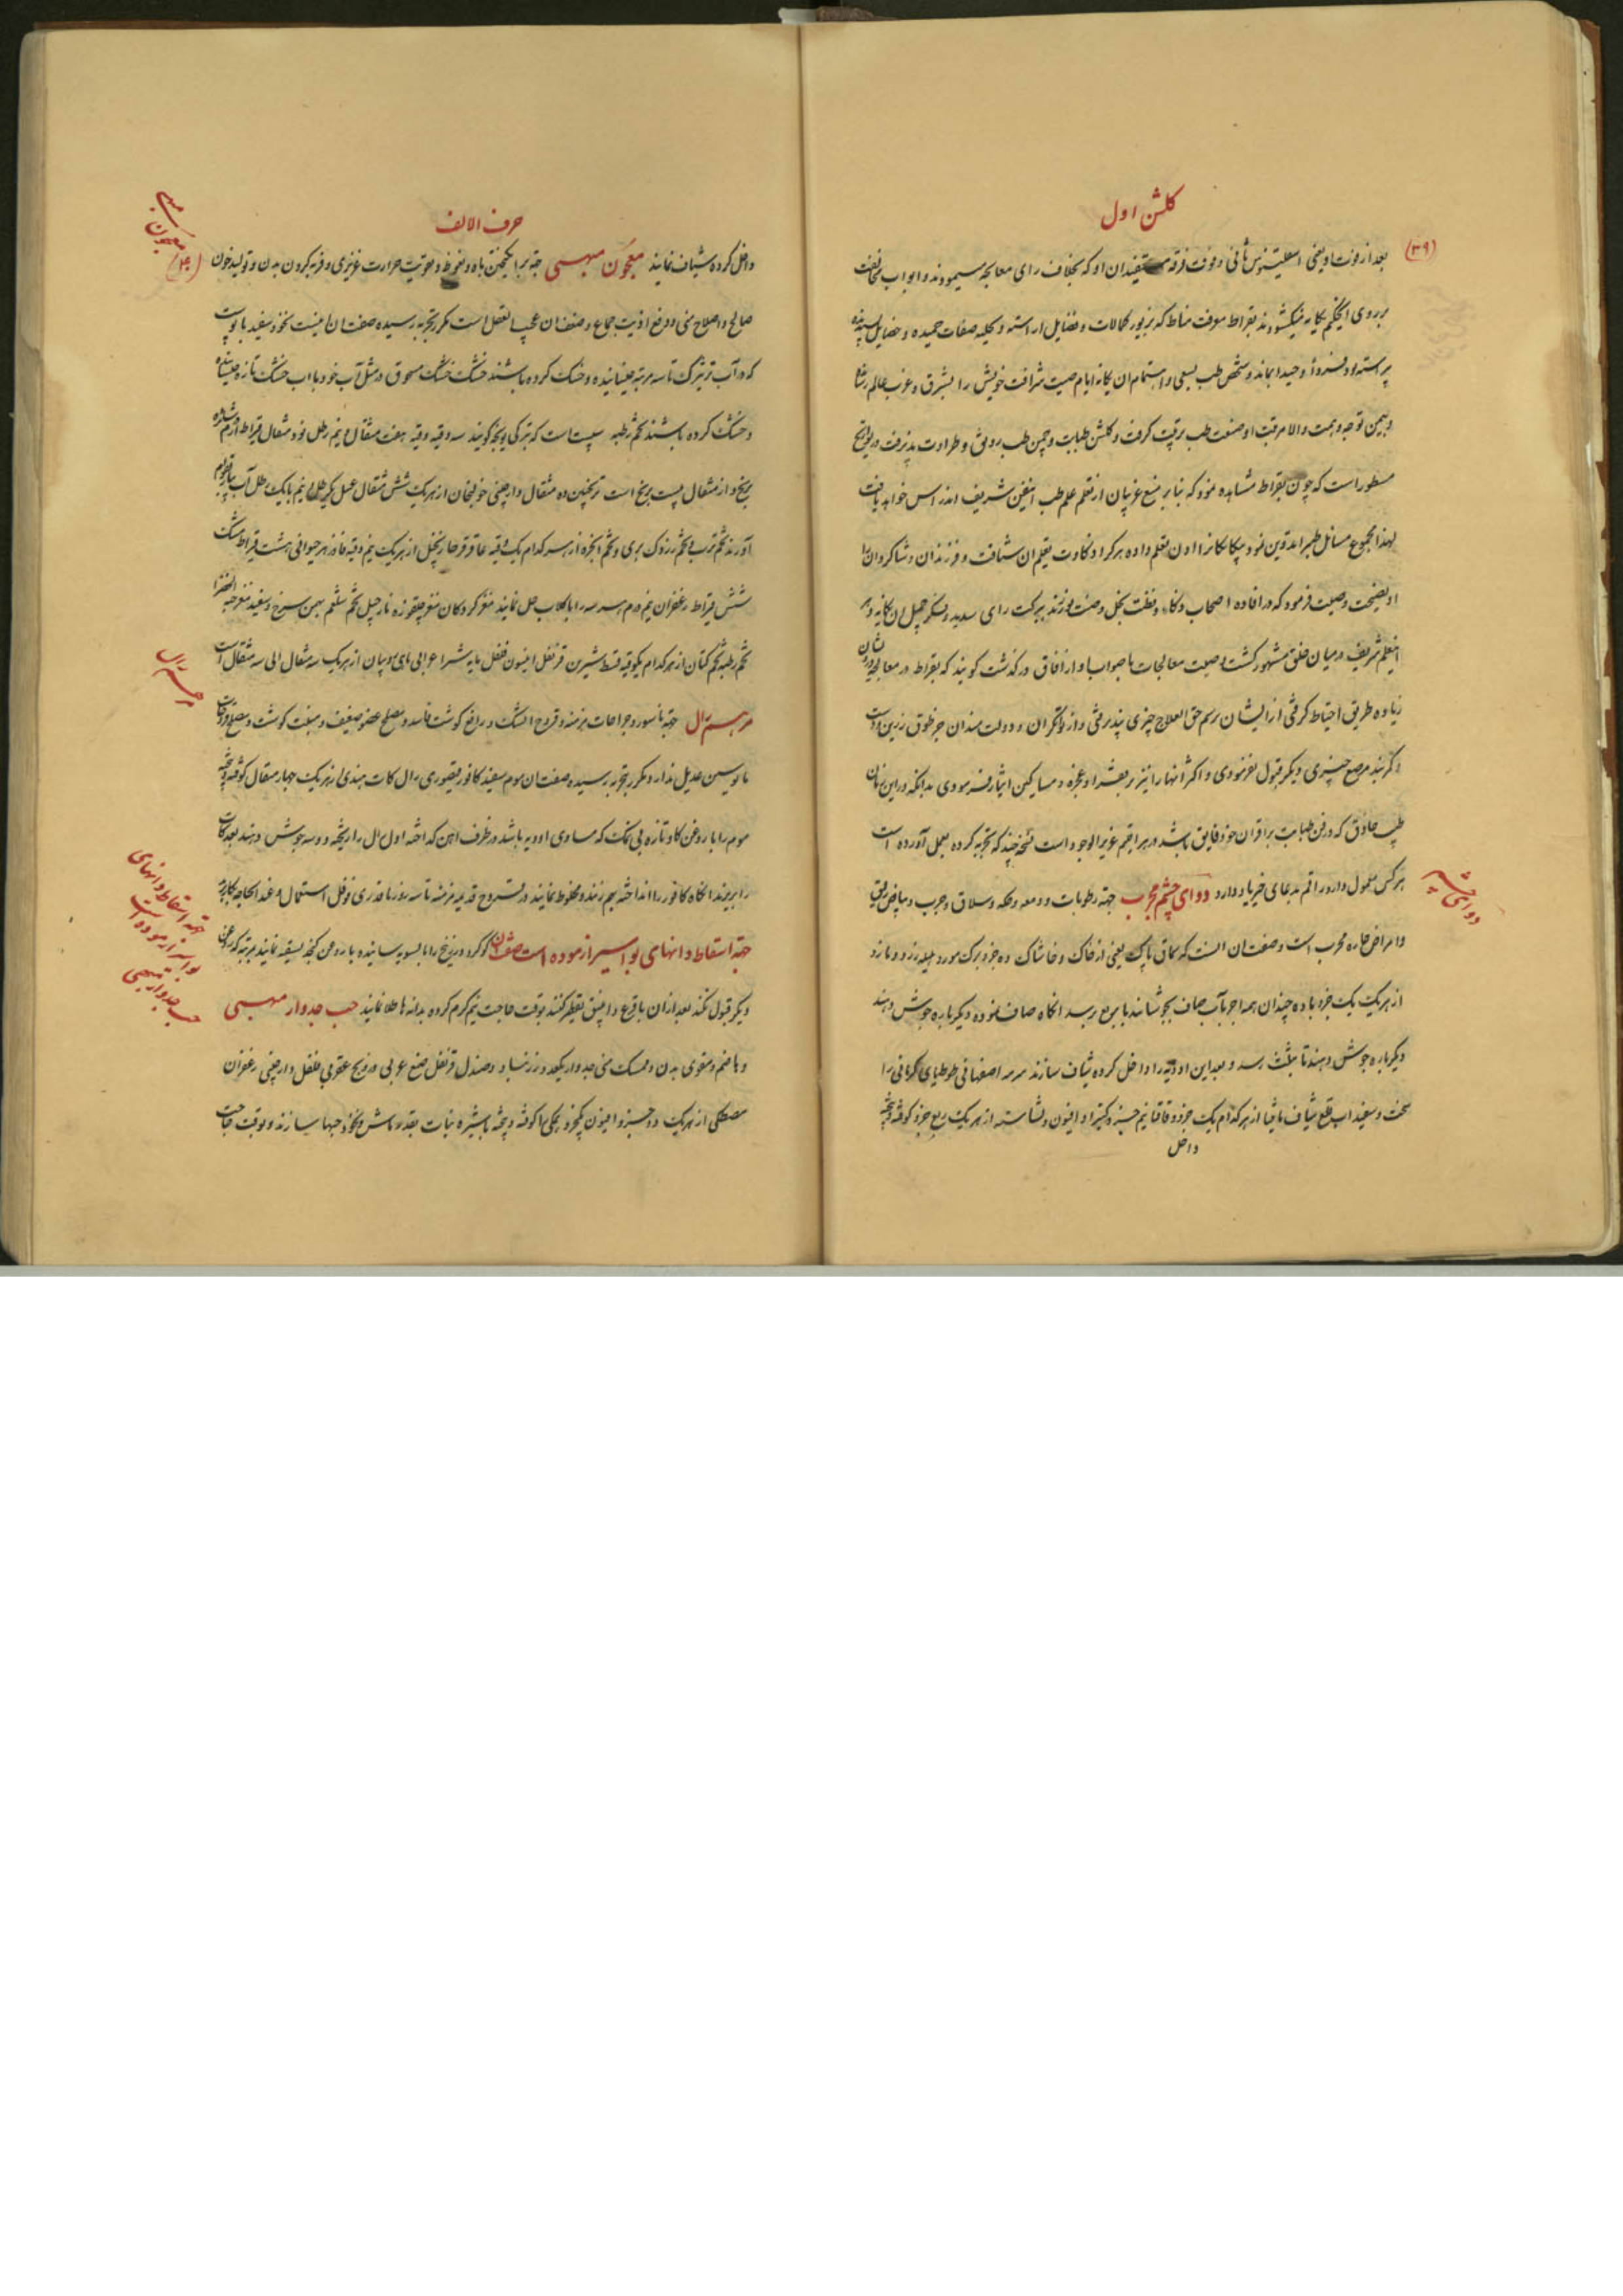 گلشن اول
(۳۹)
بعد از فوت او یعنی اسقلینوس ثانی و فوت فرقه مستفیدان او که بخلاف رای معالجه میفرمودند و ابواب مخالفت
بر روی بقراط که بزیور کمالات و فضایل اراسته و بحلیه صفات حمیده و خصایل پسندیده
پیراسته بود فرداً وحیداً بماند و شخص طب بسعی و اهتمام ان یگانه ایام صیت شرافت خویش را بشرق و غرب عالم رسانید
و بیمن توجه و همت والا مرتبت او صنعت طب ترقیت گرفت و گلشن طبابت و چمن طب رونق و طراوت پذیرفت در تواریخ
مسطور است که چون بقراط مشاهده نمود که بنابر منع غریبان از تعلم علم طب این فن شریف اندراس خواهد یافت
لهذا مجموع مسائل طبیه را تدوین نمود بیگانگانرا اذن تعلم داده هرکرا ذکاوت بتعلیم ان شتافت و فرزندان و شاگردان را
او نصیحت وصیت فرمود که در افاده اصحاب ذکاء و فطنت بخل و ضنت نورزند ببرکت رای سدید و فکر جمیل ان یگانه دهر
اینعلم شریف در میان خلق مشهور گشت وصیت معالجات باصواب او از افاق درگذشت گویند که بقراط در معالجه درویشان
زیاده طریق احتیاط گرفتی از ایشان برسم حق العلاج چیزی نپذیرفتی و از توانگران و دولت مندان جز طوق زرین و اسب
و کمربند مرصع چیزی دیگر قبول نفرمودی و اکثر آنها را نیز بر فقراء و عجزه و مساکین ایثار فرمودی بدانکه در این زمان
طبیب حاذق که در فن طبابت بر اقران خود فایق باشد در هر اقلیم عزیز الوجود است نسخه چند که تجربه کرده بعمل آورده است
هر کس معمول دارد راقم بدعای خیر یاد دارد دوای چشم مجرب جهة رطوبات و دمعه و حکه و سلاق و جرب و بیاض رقیق
دوای چشم
و امراض حاره مجرب است و صفت ان انست که سماق پاک یعنی از خاک و خاشاک ده جزو برک مورد هلیله زرد و مازو
از هر یک یک جزو با ده چندان همه اجزا بآب صاف بجوشانند تا بربع رسد انگاه صاف نموده دیگر باره جوش دهند
دیگر باره جوش دهند تا بثلث رسد و بعد این ادویه را داخل کرده شیاف سازند سرمه اصفهانی طوطیای کرمانی را
سخت و سفید اب قلع شیاف مامیثا از هر کدام یک جزو و اقاقیا نیم جزو کتیرا و افیون و نشاسته از هر یک ربع جزو کوفته و بیخته
داخل
حرف الالف
داخل کرده شیاف نمایند معجون مبهی جهة برانگیختن باه و نعوظ و تقویت حرارت غریزی و فربه کردن بدن و تولید خون
معجون مبهی
(۴۰)
صالح و اصلاح منی و دفع اذیت جماع و ضعف ان عجیب الفعل است مکرر بتجربه رسیده صفت ان اینست نخود سفید با پوست
که در آب تره تیزک تا سه مرتبه خیسانیده و خشک کرده باشند خشک مسحوق در مثل آب خود با اب خسک تازه خیسانیده
و خشک کرده باشند تخم رطبه سپست است که بترکی یونجه گویند سه وقیه وقیه هفت مثقال و نیم رطل نود مثقال قیراط
برنج و از مثقال بیست برنج است ترنجبین ده مثقال دارچینی خولنجان از هر یک شش مثقال عسل یک رطل و نیم با یک رطل آب پیاز بقوام
آورند تخم ترب تخم زردک بری و تخم انجره از هر کدام یک وقیه عاقرقرحا زنجبیل از هر یک نیم وقیه هشت قیراط مشک
شش قیراط زعفران نیم درم هر سه را با گلاب حل نمایند مغز گردکان مغز چلقوزه نارجیل تخم شلغم بهمن سرخ و سفید مغز حبه الخضرا
تخم رطبه تخم کتان از هر کدام یکوقیه قسط شیرین قرنفل انیسون فلفل از هر یک سه مثقال الی سه مثقال است
مرهم رال جهة ناسور و جراحات مزمنه و قروح اتشک و رافع گوشت فاسد و مصلح عضو ضعیف و منبت گوشت و مصلح قروحات
مرهم رال
مایوسین عدیل ندارد و مکرر بتجربه رسیده صفت ان موم سفید کافور قیصوری رال کات هندی از هر یک چهار مثقال کوفته و بیخته
موم را با روغن گاو تازه بی نمک که مساوی ادویه باشد در ظرف اهن گداخته اول رال را ریخته دو سه جوش دهند بعد کات
را بریزند انگاه کافور را انداخته بهم زنند و مخلوط نمایند و قروح قدیمه مزمنه تا سه روز با قدری فوفل استعمال و عند الحاجه بکار برند
جهة اسقاط دانهای بواسیر ازموده است صفت ان گوگرد و زرنیخ را بالسویه سائیده با روغن کنجد تسقیه نمایند بمرتبه که روغن
جهة اسقاط دانهای
بواسیر ازموده است
دیگر قبول نکند بعد از ان با قرع و انبیق تقطیر کنند بوقت حاجت نیم گرم کرده بدانه ها طلا نمایند حب جدوار مبهی
حب جدوار مبهی
و هاضم و مقوی بدن و ممسک منی جدوار یکعدد زرنباد و صندل قرنفل صمغ عربی درونج عقربی فلفل دارچینی زعفران
مصطکی از هر یک دو جزو افیون یکجزو همگی را کوفته و بیخته با شیره نبات بقدر ماش و نخود حبها سازند و بوقت حاجت